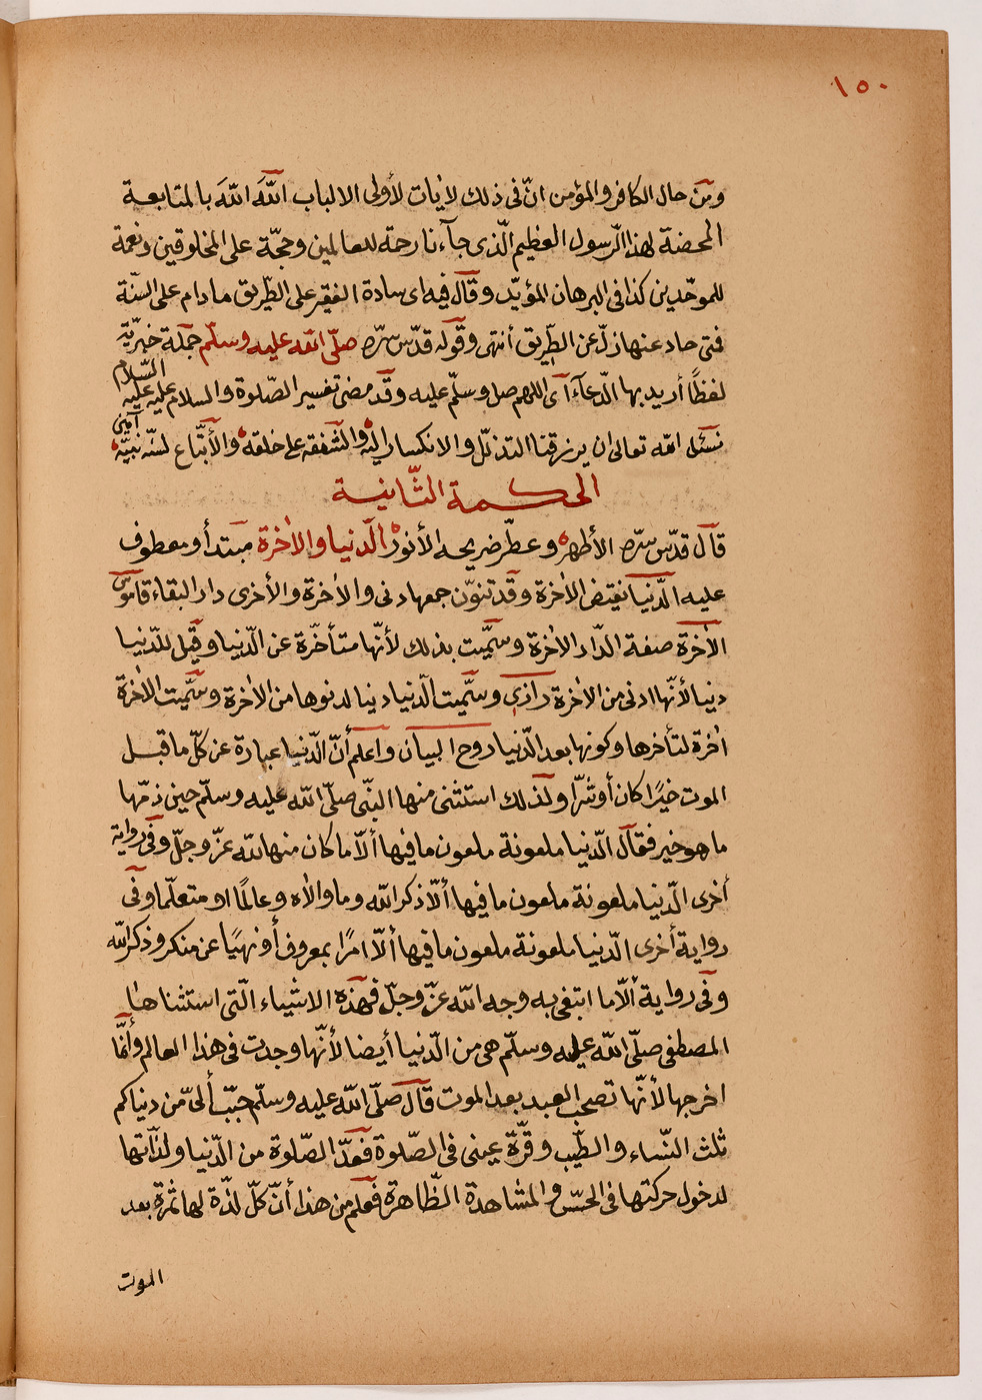 ١٥٠
ومن حال الكافر والمؤمن انّ فى ذلك لاٰيات لأولى الالباب اللّٰهَ اللّٰهَ بالمتابعة
المحضة لهذا الرّسول العظيم الّذى جآءنا رحمة للعالمين وحجّة على المخلوقين ونعمة
للموحّدين كذا فى البرهان المؤيّد وقال فيه اى سادة الفقير على الطّريق مادام على السنّة
فمتى حاد عنها زلّ عن الطّريق أنتهى وقوله قدّس سرّه صلّى الله عليه وسلّم جملة خبريّة
لفظاً أريد بها الدّعآء اى اللهم صل وسلّم عليه وقد مضى تفسير الصّلوة والسلام عليه عليه السّلام
نسئل الله تعالى ان يرزقنا التذلّل والانكسار اليه والشفقه على خلقه والأتّباع لسنّه نبيّه اٰمين
الحكمة الثّانية
قال قدّس سرّه الأطهر وعطّر ضريحه الأنور الدّنيا والاٰخرة مبتدأ ومعطوف
عليه الدّنيا نقيض الاٰخرة وقد تنوّن جمعها دنى والاٰخرة والأخرى دار البقاء قاموس
الاٰخرة صفة الدّار الاٰخرة وسمّيت بذلك لأنّها متأخّرة عن الدّنيا وقيل للدّنيا
دنيا لأنّها ادنى من الاٰخرة رازى وسمّيت الدّنيا دنيا لدنوها من الاٰخرة وسمّيت الاٰخرة
اٰخرة لتأخرها وكونها بعد الدّنيا روح البيان واعلم أنّ الدّنيا عبارة عن كلّ ما قبل
الموت خيرًا كان أو شرّا ولذلك استثنى منها النبّى صلّى اللّه عليه وسلّم حين ذمّها
ما هو خير فقال الدّنيا ملعونة ملعون ما فيها ألاّ ما كان منها للّه عزّ وجلّ وفى رواية
أخرى الدّنيا ملعونة ملعون ما فيها ألاّ ذكر اللّه وما والاٰه وعالمًا او متعلّما وفى
رواية أخرى الدّنيا ملعونة ملعون ما فيها ألاّ امرًا بمعروف أو نهيًا عن منكر وذكر اللّه
وفى رواية ألاّ ما ابتغى به وجه اللّه عزّ وجلّ فهذه الاشياء الّتى استثناها
المصطفى صلّى اللّه عليه وسلّم هى من الدّنيا أيضا لأنّها وجدت فى هذا العالم وأنّما
اخرجها لأنّها تصحب العبد بعد الموت قال صلّى اللّه عليه وسلّم حبّب ألىّ من دنياكم
ثلث النّساء والطّيب وقرّة عينى فى الصّلوة فعدّ الصّلوة من الدّنيا ولذّاتها
لدخول حركتها فى الحسّ والمشاهدة الظّاهرة فعلم من هذا أنّ كلّ لذّة لها ثمرة بعد
الموت